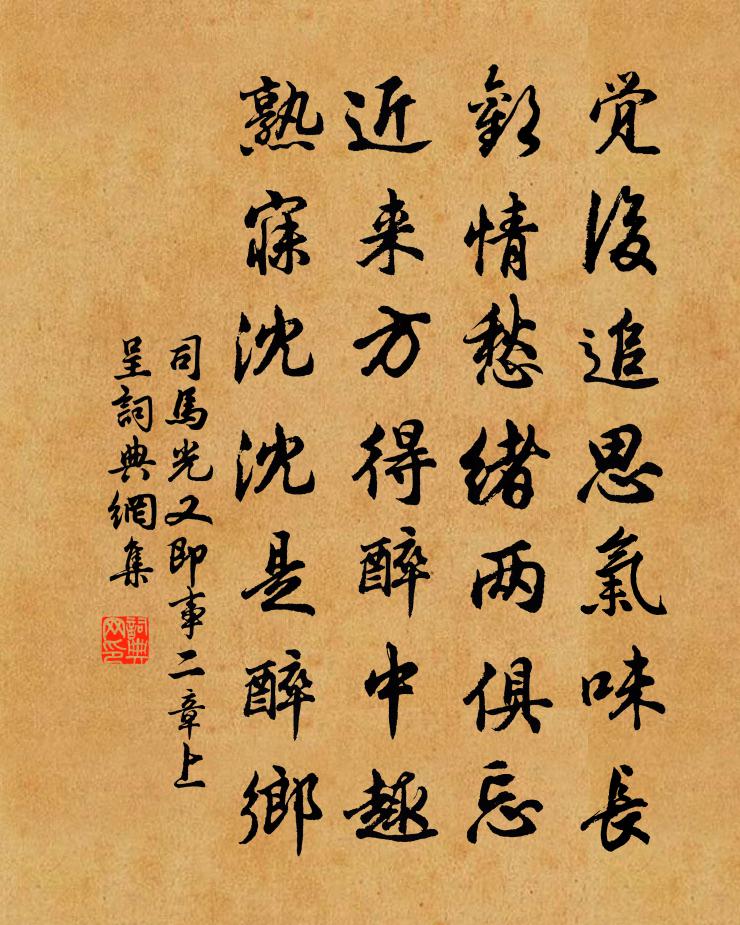 覚後追思氣味長
歡情愁緒两俱忘
近来方得醉中趣
熟寐沈沈是醉鄉
司馬光又即事二章上
呈詞典網集
詞典
网印